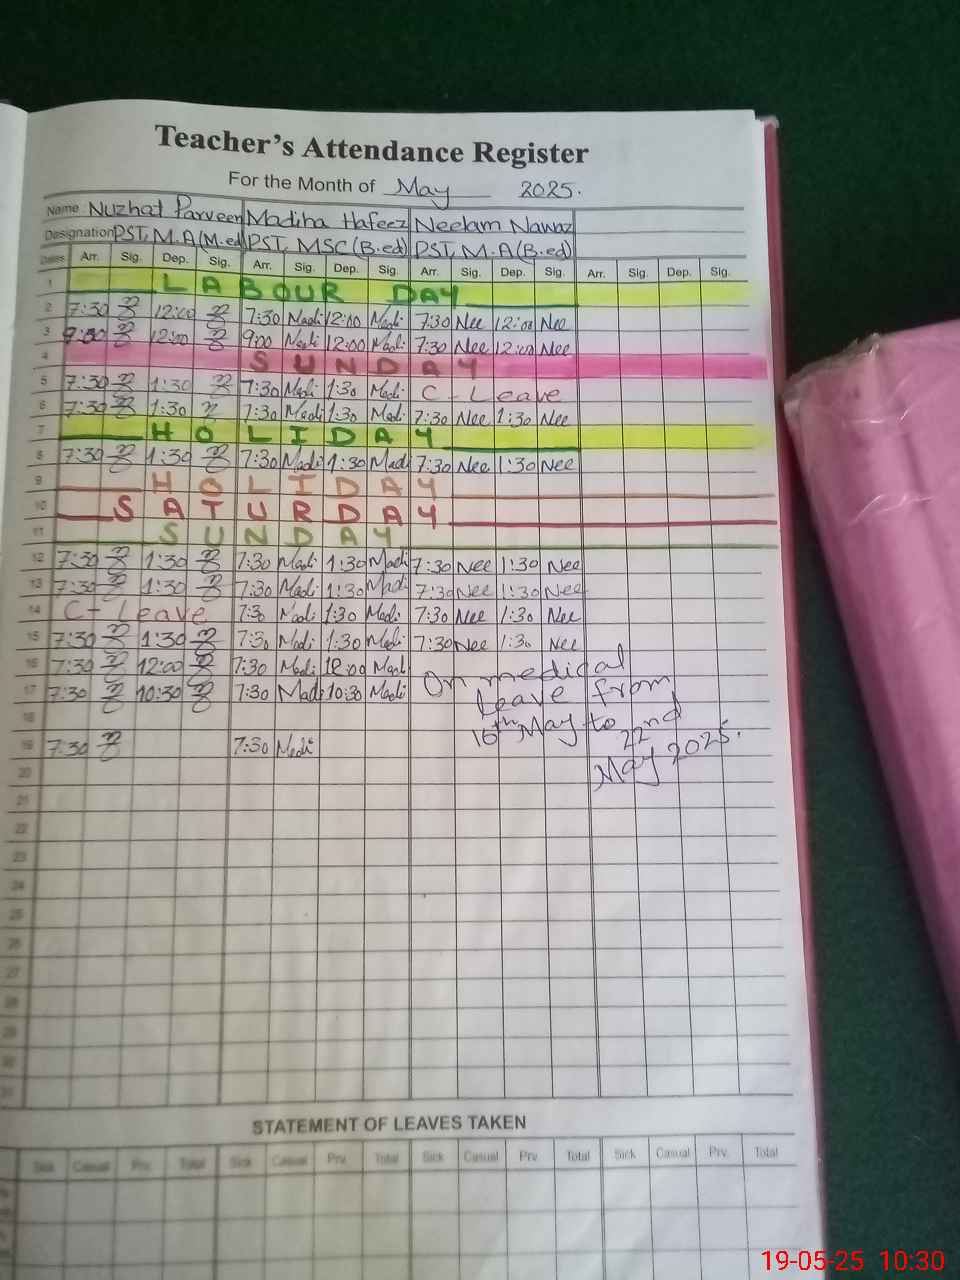 Teacher's Attendance Register
For the Month of May 2025.
Name Nuzhat Parveen Madiha Hafeez Neelam Nawaz
Designation PST, M.A (M.ed) PST, MSC (B.ed) PST, M.A (B.ed)
Dates Arr. Sig. Dep. Sig. Arr. Sig. Dep. Sig. Arr. Sig. Dep. Sig. Arr. Sig. Dep. Sig.
1 LABOUR DAY
2 7:30 12:00 7:30 Madi 12:00 Madi 7:30 Nee 12:00 Nee
3 12:00 9:00 Madi 12:00 Madi 7:30 Nee 12:00 Nee
4 SUNDAY
5 7:30 1:30 7:30 Madi 1:30 Madi C - Leave
6 7:30 1:30 7:30 Madi 1:30 Madi 7:30 Nee 1:30 Nee
7 HOLIDAY
8 7:30 1:30 7:30 Madi 1:30 Madi 7:30 Nee 1:30 Nee
9 HOLIDAY
10 SATURDAY
11 SUNDAY
12 7:30 1:30 7:30 Madi 1:30 Madi 7:30 Nee 1:30 Nee
13 7:30 1:30 7:30 Madi 1:30 Madi 7:30 Nee 1:30 Nee
14 C - Leave 7:30 Madi 1:30 Madi 7:30 Nee 1:30 Nee
15 7:30 1:30 7:30 Madi 1:30 Madi 7:30 Nee 1:30 Nee
16 7:30 12:00 7:30 Madi 12:00 Madi On medical
17 7:30 10:30 7:30 Madi 10:30 Madi Leave from
18 16th May to 22nd
19 7:30 7:30 Madi May 2025.
20
21
22
23
24
25
26
27
28
29
30
31
STATEMENT OF LEAVES TAKEN
Sick Casual Prv. Total Sick Casual Prv. Total Sick Casual Prv. Total Sick Casual Prv. Total
19-05-25 10:30